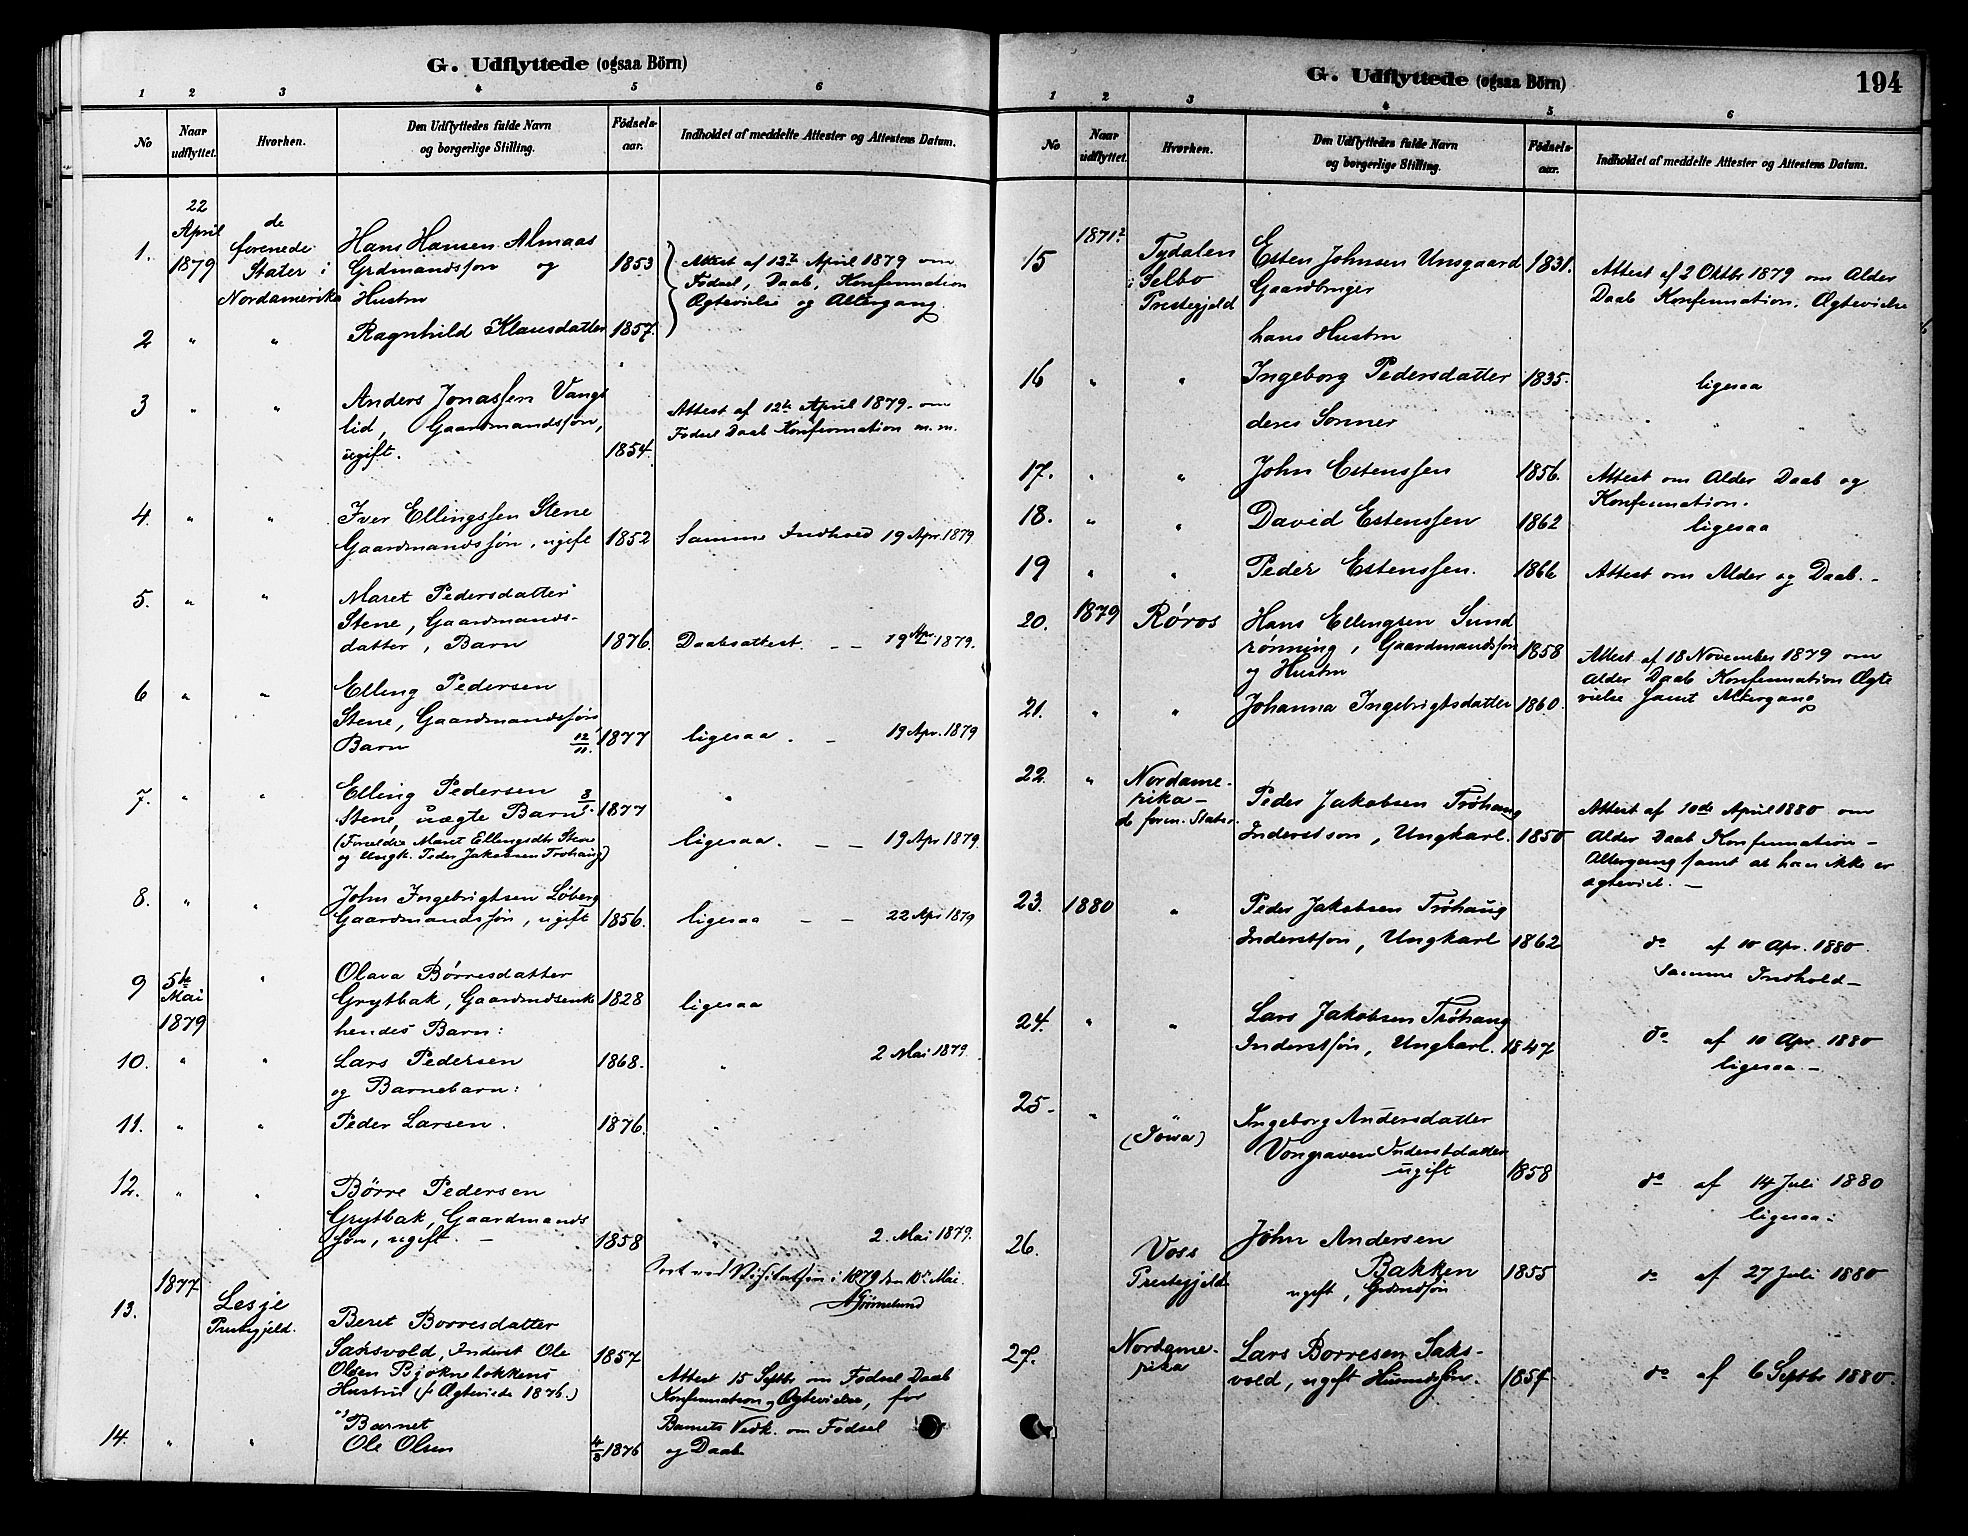 G. Udflyttede (ogsaa Börn)
1 2 3 4 5 6
No
Naar udflyttet.
Hvorhen.
Den Udflyttedes fulde Navn
og borgerlige Stilling.
Fødsels-
aar.
Indholdet af meddelte Attester og Attestens Datum.
1. 22 April 1879
de forenede Stater i Nordamerika
Hans Hansen Almaas
Grdmandsson og 1853
Hustru
Attest af 12te April 1879 om
Fødsel, Daab, Konfirmation
Ægtevielse og Altergang.
2 " " Ragnhild Klausdatter 1857.
3 " " Anders Jonassen Vangs
lid, Gaardmandssøn,
ugift. 1854.
Attest af 12te April 1879. om
Fødsel Daab Konfirmation m. m.
4. " " Iver Ellingssen Stene
Gaardmandssøn, ugift 1852 Samme Indhold 19 Apr. 1879.
5. " " Maret Pedersdatter
Stene, Gaardmands-
datter, Barn 1876. Daabsattest. – – 19 Apr. 1879.
6 " " Elling Pedersen
Stene, Gaardmandssøn,
Barn 12/11. 1877 ligesaa. – 19 Apr. 1879
7. " " Elling Pedersen 8/1.
Stene, uægte Barn 1877 "
(Forældre Maret Ellingsdtr Stene
og Ungk. Peder Jakobsen Trøhaug)
ligesaa. – – 19 Apr 1879.
8. " " John Ingebrigtsen Løberg
Gaardmandssøn, ugift 1856. ligesaa – – 22 Apr 1879
9 5te Mai 1879 " Olava Børresdatter
Grytbak, Gaardmdsenke 1828 ligesaa
hendes Barn:
10. " " Lars Pedersen 1868. " 2 Mai 1879.
og Barnebarn:
11. " " Peder Larsen. 1876. "
12. " " Børre Pedersen
Grytbak, Gaardmands
søn, ugift. – 1858 2. Mai 1879.
ved Visitatsen i 1879 den 10de Mai.
13. 1877 Lesje
Prestegjeld.
Beret Borresdatter
Saksvold, Inderst Ole 1857
Hustru (f. Ægteviede 1876.)
Attest 15 Septbr. om Fødsel Daab
Konfirmation og Ægtevielse, for
Barnets Vedk. om Fødsel
og Daab
14. " " Barnet
Ole Olsen 4/8 1876
G. Udflyttede (ogsaa Börn) 194
1 2 3 4 5 6
No
Naar udflyttet.
Hvorhen.
Den Udflyttedes fulde Navn
og borgerlige Stilling.
Fødsels-
aar.
Indholdet af meddelte Attester og Attestens Datum.
15 1871? Tydalen
i Selbo
Prestegjeld
Esten Johnsen Unsgaard 1831.
Gaardbruger
Attest af 2 Oktbr 1879 om Alder
Daab Konfirmation. Ægtevielse
hans Hustru
16 " " Ingeborg Pedersdatter 1835. ligesaa
deres Sønner
17. " " John Estenssen 1856. Attest om Alder Daab og
Konfirmation.
18. " " David Estenssen 1862 ligesaa
19 " " Peder Estenssen. 1866 Attest om Alder og Daab. –
20. 1879 Røros Hans Ellingsen Sund
rønning, Gaardmandssøn 1858
og Hustru
Attest af 18 November 1879 om
Alder Daab Konfirmation Ægte
vielse samt Altergang
21. " " Johanna Ingebrigtsdatter 1860.
22. " Nordame-
rika –
d. foren. Stater
Peder Jakobsen Trøhaug
Inderstsøn, Ungkarl. 1850
Attest af 10de April 1880 om
Alder Daab Konfirmation –
Altergang samt at han ikke er
ægteviet. –
23. 1880 " Peder Jakobsen Trøhaug
Inderstsøn, Ungkarl 1862 do af 10 Apr. 1880.
Samme Indhold –
24. " " Lars Jakobsen Trøhaug
Inderstsøn, Ungkarl. 1847 do af 10 Apr 1880
ligesaa. –
25. " " (Iowa) Ingeborg Andersdatter
Vongraven Inderstdatter
ugift 1858 do af 14 Juli 1880
ligesaa.
26. Voss
Prestegjeld
John Andersen
Bakken 1855 do af 27 Juli 1880
ugift, Grdmdssøn
27. Nordame-
rika
Lars Borresen Saks-
vold, ugift Husmdssøn. 1857 do af 6 Septbr 1880.